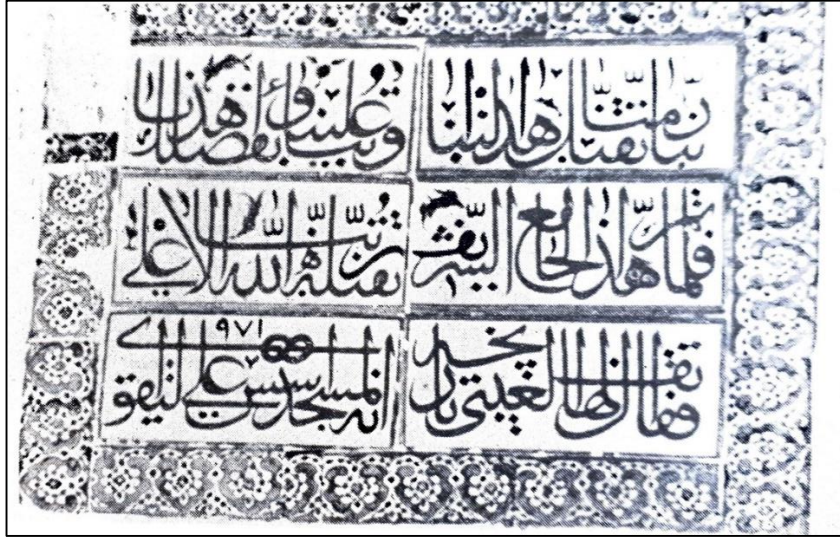 ربنا تقبل منا هذا البنا وتب علينا
فلما تم هذا الجامع الشريف تقبله ربه الله الاعلى
فقال هاتف الغيبى تاريخه انه لمسجد اسس على التقوى ٩٧١